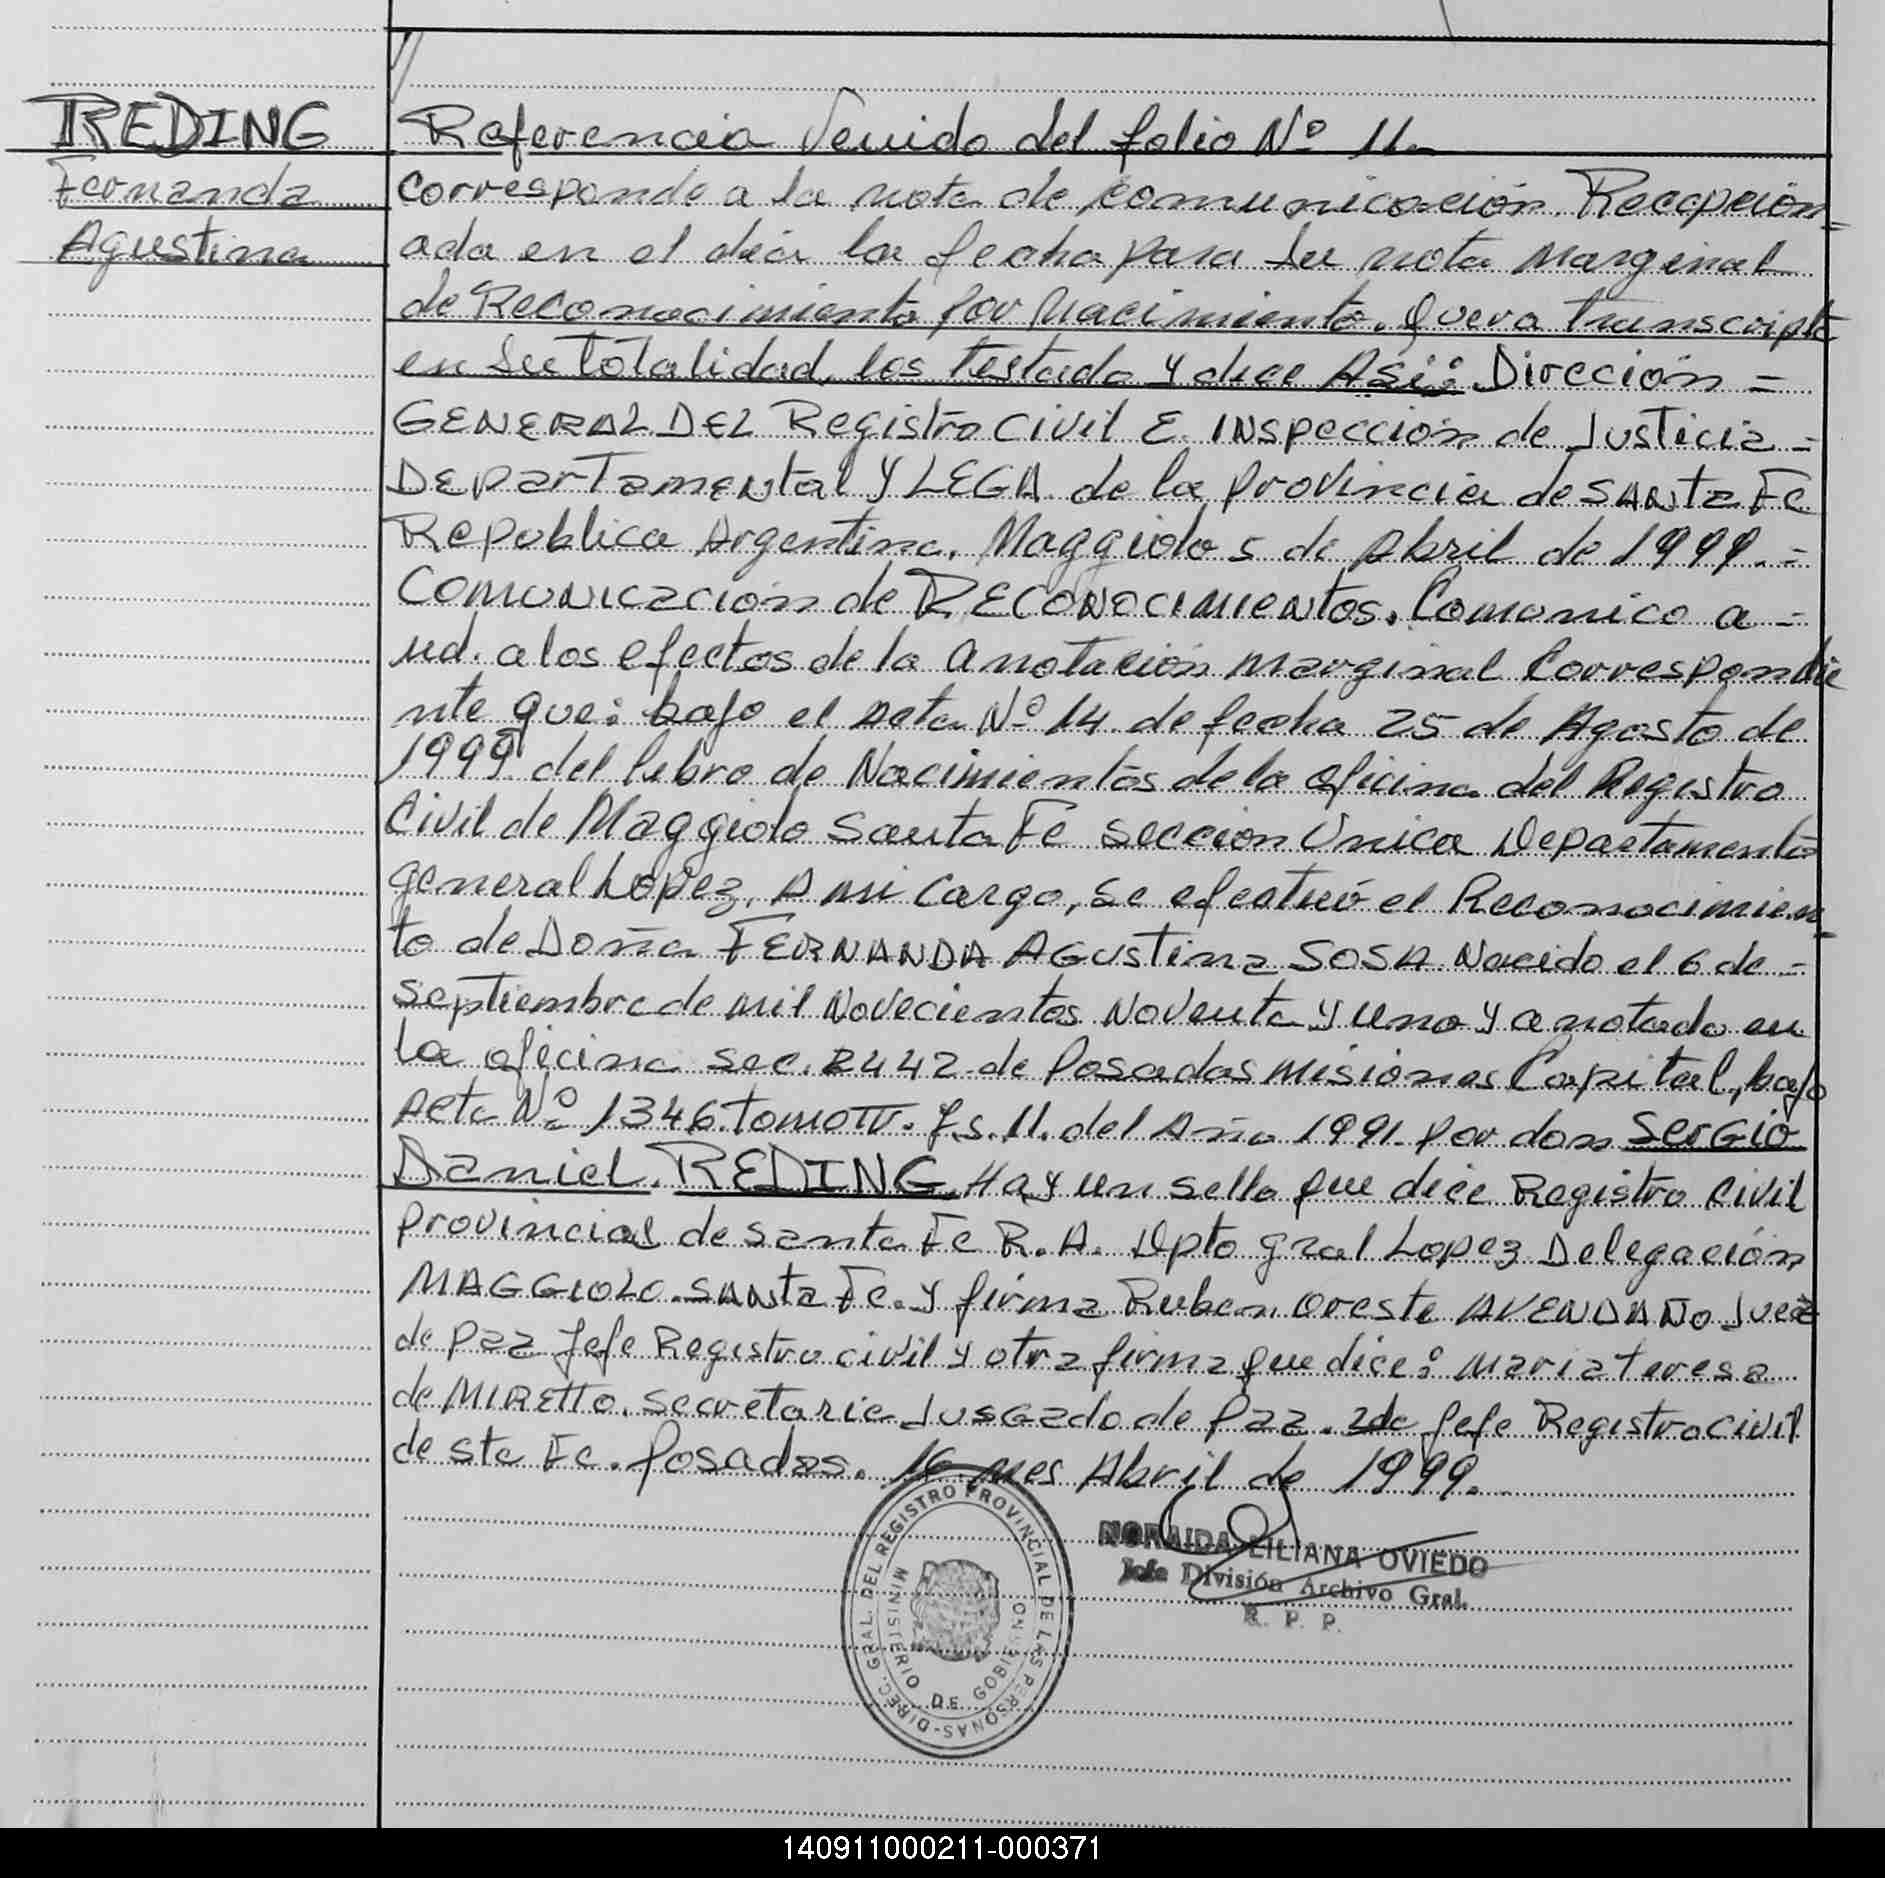 REDING
Fernanda
Agustina
Referencia Venido del folio Nº 11.-
Corresponde a la nota de comunicación Recepcion=
ada en el dia la fecha para su nota Marginal
de Reconocimiento por Nacimiento. Que va transcripto
en su totalidad, los Testado y dice Asi: Dirección =
GENERAL DEL Registro Civil E INSpeccion de Justicia =
DEParTamENtal Y LEGA de la provincia de SANta Fe
Republica Argentina. Maggiolo 5 de Abril de 1999.=
COMUNICACION de RECONOCIMIENTOS. Comunico a =
ud. a los efectos de la anotacion marginal Correspondie
nte que: bajo el Acta Nº 14 de fecha 25 de Agosto de
1999 del libro de Nacimientos de la oficina del Registro
Civil de Maggiolo Santa Fe seccion Unica Departamento
general Lopez, A mi cargo, se efectuó el Reconocimien
to de Doña FERNANDA AGUStina SOSA Nacido el 6 de =
septiembre de mil Novecientos Noventa y uno y anotado en
la oficina sec. 2442 de Posadas Misiones Capital, bajo
Acta Nº 1346 tomo IV. fs. 11. del Año 1991. por don SerGio
Daniel REDING. Hay un sello que dice Registro Civil
provincial de Santa Fe R.A. Dpto gral Lopez Delegación
MAGGIOLO. SANta Fe. y firma Ruben Oreste AVENDAÑO Juez
de paz Jefe Registro civil y otra firma que dice: Maria teresa
de MIRETTO. secretaria JusGado de Paz. 2do Jefe Registro Civil
de sta Fe. Posadas. 16 mes Abril de 1999.
NORAIDA LILIANA OVIEDO
Jefe División Archivo Gral.
R. P. P.
DIREC. GRAL. DEL REGISTRO PROVINCIAL DE LAS PERSONAS-
MINISTERIO DE GOBIERNO
140911000211-000371